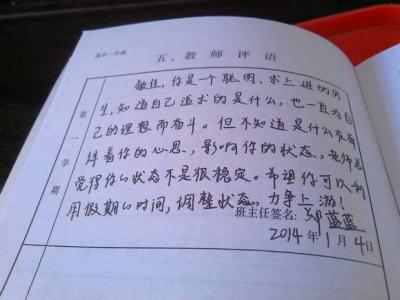 高中一年级
五、教师评语
第一学期
敏佳,你是一个聪明、求上进的男
生,知道自己追求的是什么,也一直为自
己的理想而奋斗。但不知道是什么在牵
绊着你的心思,影响你的状态,老师总
觉得你的状态不是很稳定。希望你可以利
用假期的时间,调整状态,力争上游!
班主任签名:郑蓝蓝
2014年1月4日